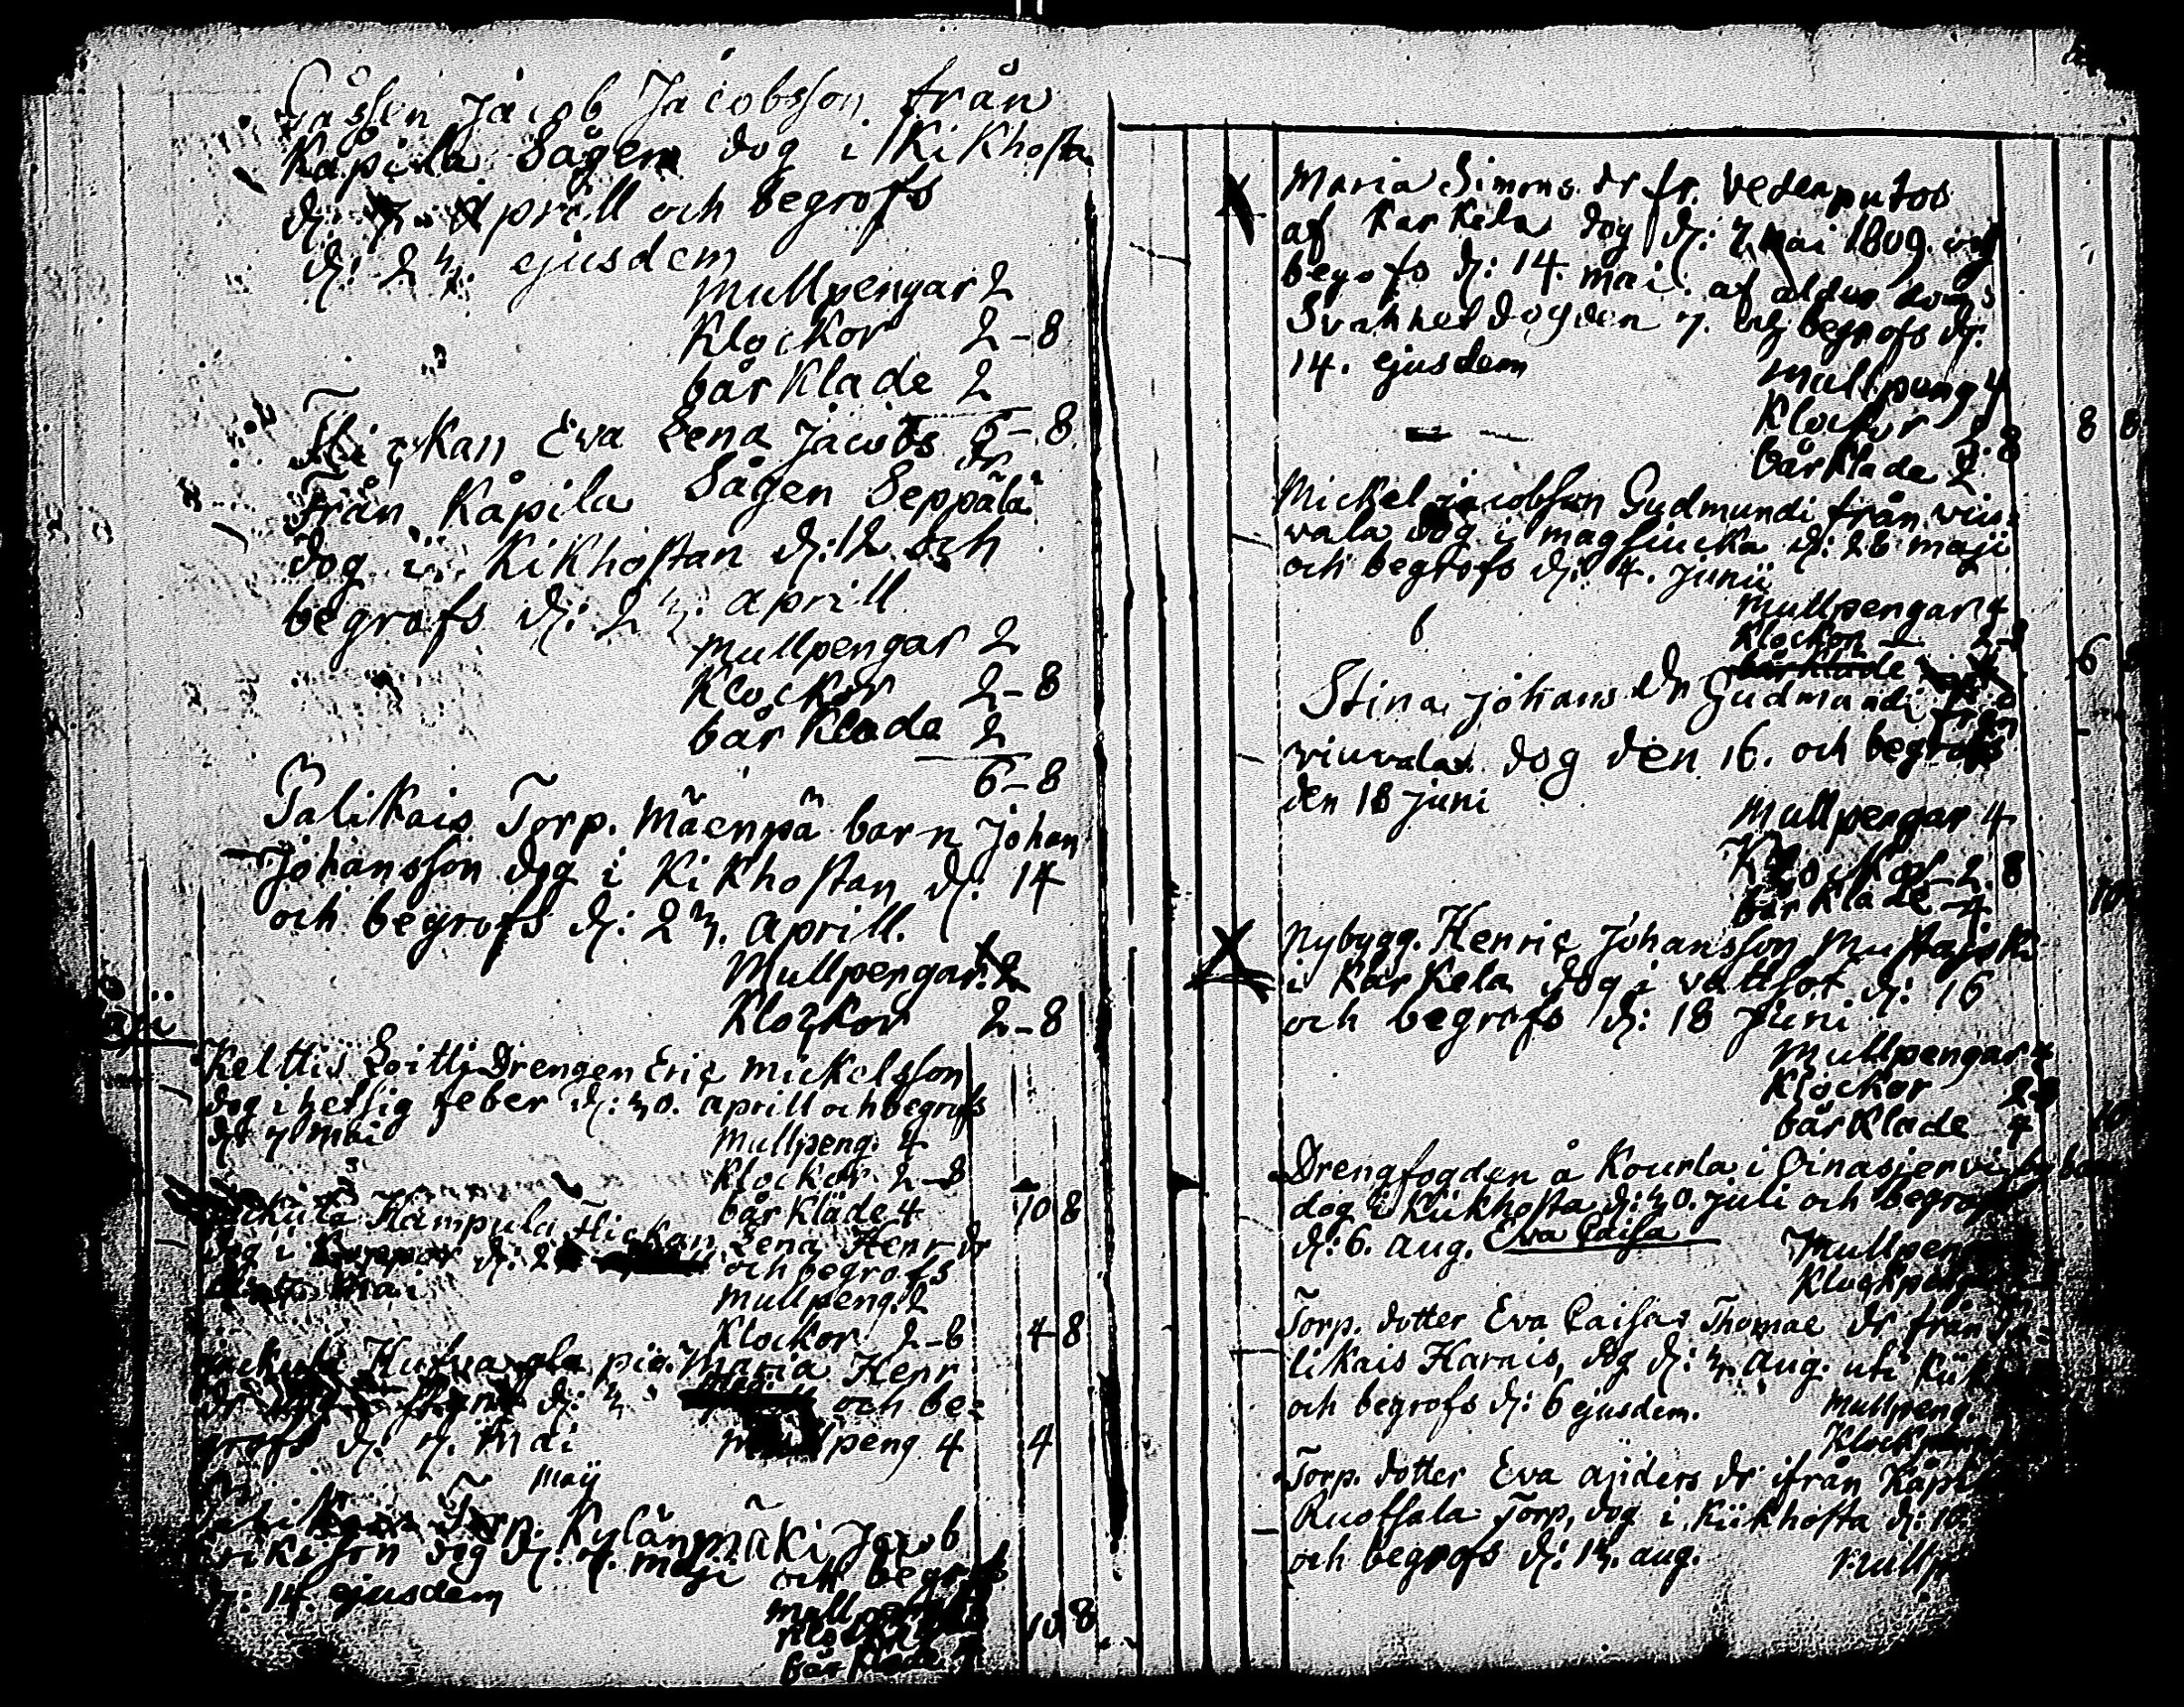 Gåssen Jacob Jacobsson från
Kåpila Sågen dog i Kikhosta
d: Aprill och begrofs
d: 23. ejusdem
Mullpengar 2
Klockor 2-8
bårklade 2
6-8
Flickan Eva Lena Jacobs dr
Från Kåpila Sågen Seppälä
dog i Kikhostan d: 12 och
begrofs d: 23. aprill
Mullpengar 2
Klockor 2-8
bårklade 2
6-8
Palikais Torp. Mäenpä barn Johan
Johansson dog i Kikhostan d: 14
och begrofs d: 23. aprill.
Mullpengar 2
Klockor 2-8
Maji
Kelttis Loitti Drengen Eric Mickelsson
dog i hetsig feber d: 30. aprill och begrofs
d: 7 Mai
Mullpeng. 4
Klockor 2-8
bårkläde 4 10 8
Kämpula Flickan Lena Henr dr
dog i Koppor d: och begrofs
Mai
Mullpeng. 2
Klockor 2-8 4 8
pig. Maria Henr
dr d: 3 och be=
grofs d: 7. Mai
Mullpeng 4 4
Maÿ
Torp. Kylänmäki Jacob
Eriksson dog d: 7. Maji och begrofs
d: 14. ejusdem
Mullpeng
Klockor
bårklade 4 10 8
Maria Simons dr fr. Vedenputos
af Karkela dog d: 7 Mai 1809. och
begrofs d: 14. Mai. af ålderdoms
Svaghet dog den 7. och begrofs d:
14. ejusdem
Mullpeng 4
Klockor 2 8 8 8
bårklade 2
Mickel Jacobsson Gudmundi från viu=
vala dog i magsiucka d: 28 maji
och begrofs d: 4. Junii
Mullpengar 4
Klockor 2-8
bårklade 6
Stina Johans dr Gudmundi från
viuvala dog den 16. och begrofs
den 18 Juni
Mullpengar 4
Klockor 2.8
bårklade 4 10
Nybygg. Henric Johansson Mustajoki
i Karkela dog i vattsot d: 16
och begrofs d: 18 Juni
Mullpengar 4
Klockor 2-8
bårklade 4 10
Drengfogden å Kourla i Oinasjervi by
dog i Kikhosta d: 30. juli och begrofs
d: 6. aug. Eva Caisa
Mullpeng
Klockpeng
Torp. dotter Eva Caisa Thomae dr från Pa=
likais Harnis, dog d: 3. aug. uti Kik
och begrofs d: 6 ejusdem.
Mullpeng.
Klock
Torp. dotter Eva Anders dr ifrån Kåpi
Rustsala Torp, dog i Kikhosta d: 10
och begrofs d: 13. aug.
Mullp